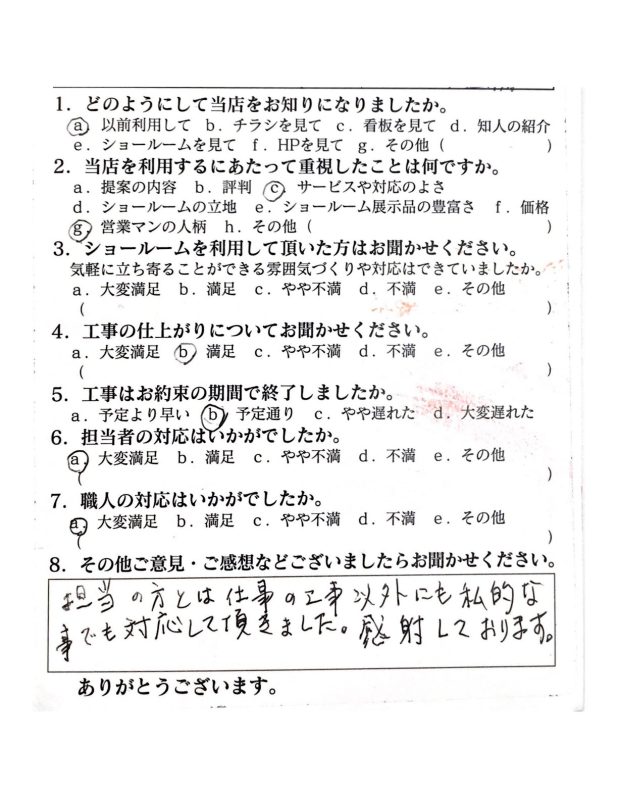 1．どのようにして当店をお知りになりましたか。
a．以前利用して b．チラシを見て c．看板を見て d．知人の紹介
e．ショールームを見て f．HPを見て g．その他（ ）
2．当店を利用するにあたって重視したことは何ですか。
a．提案の内容 b．評判 c．サービスや対応のよさ
d．ショールームの立地 e．ショールーム展示品の豊富さ f．価格
g．営業マンの人柄 h．その他（ ）
3．ショールームを利用して頂いた方はお聞かせください。
気軽に立ち寄ることができる雰囲気づくりや対応はできていましたか。
a．大変満足 b．満足 c．やや不満 d．不満 e．その他
（ ）
4．工事の仕上がりについてお聞かせください。
a．大変満足 b．満足 c．やや不満 d．不満 e．その他
（ ）
5．工事はお約束の期間で終了しましたか。
a．予定より早い b．予定通り c．やや遅れた d．大変遅れた
6．担当者の対応はいかがでしたか。
a．大変満足 b．満足 c．やや不満 d．不満 e．その他
（ ）
7．職人の対応はいかがでしたか。
a．大変満足 b．満足 c．やや不満 d．不満 e．その他
（ ）
8．その他ご意見・ご感想などございましたらお聞かせください。
担当の方とは仕事の工事以外にも私的な
事でも対応して頂きました。感射しております。
ありがとうございます。